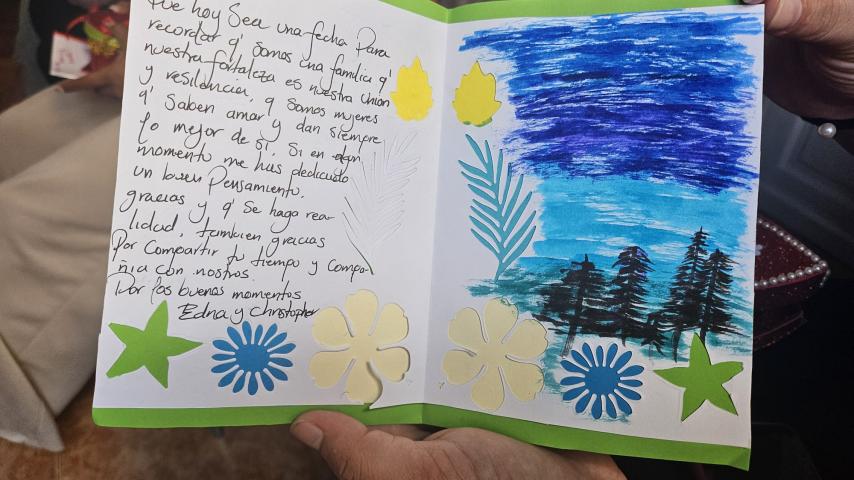 Que hoy Sea una fecha Para
recordar q' Somos una familia q'
nuestra fortaleza es nuestra Unión
y resilencia, q Somos mujeres
q' Saben amar y dan siempre
lo mejor de sí. Si en algún
momento me has dedicado
un buen Pensamiento,
gracias y q' Se haga rea-
lidad, tambien gracias
Por Compartir tu tiempo y Compa-
ñia con nostros.
Por los buenos momentos
Edna y Christopher